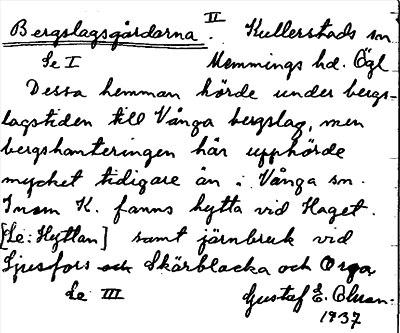 Bergslagsgårdarna II. Kullerstads sn
Se I Memmings hd. Ögl
Dessa hemman hörde under bergs-
lagstiden till Vånga bergslag, men
bergshanteringen här upphörde
mycket tidigare än i Vånga sn.
Inom K. fanns hytta vid Haget.
[Se: Hyttan] samt järnbruk vid
Ljusfors och Skärblacka och Orga
Se III Gustaf E. Olsson.
1937